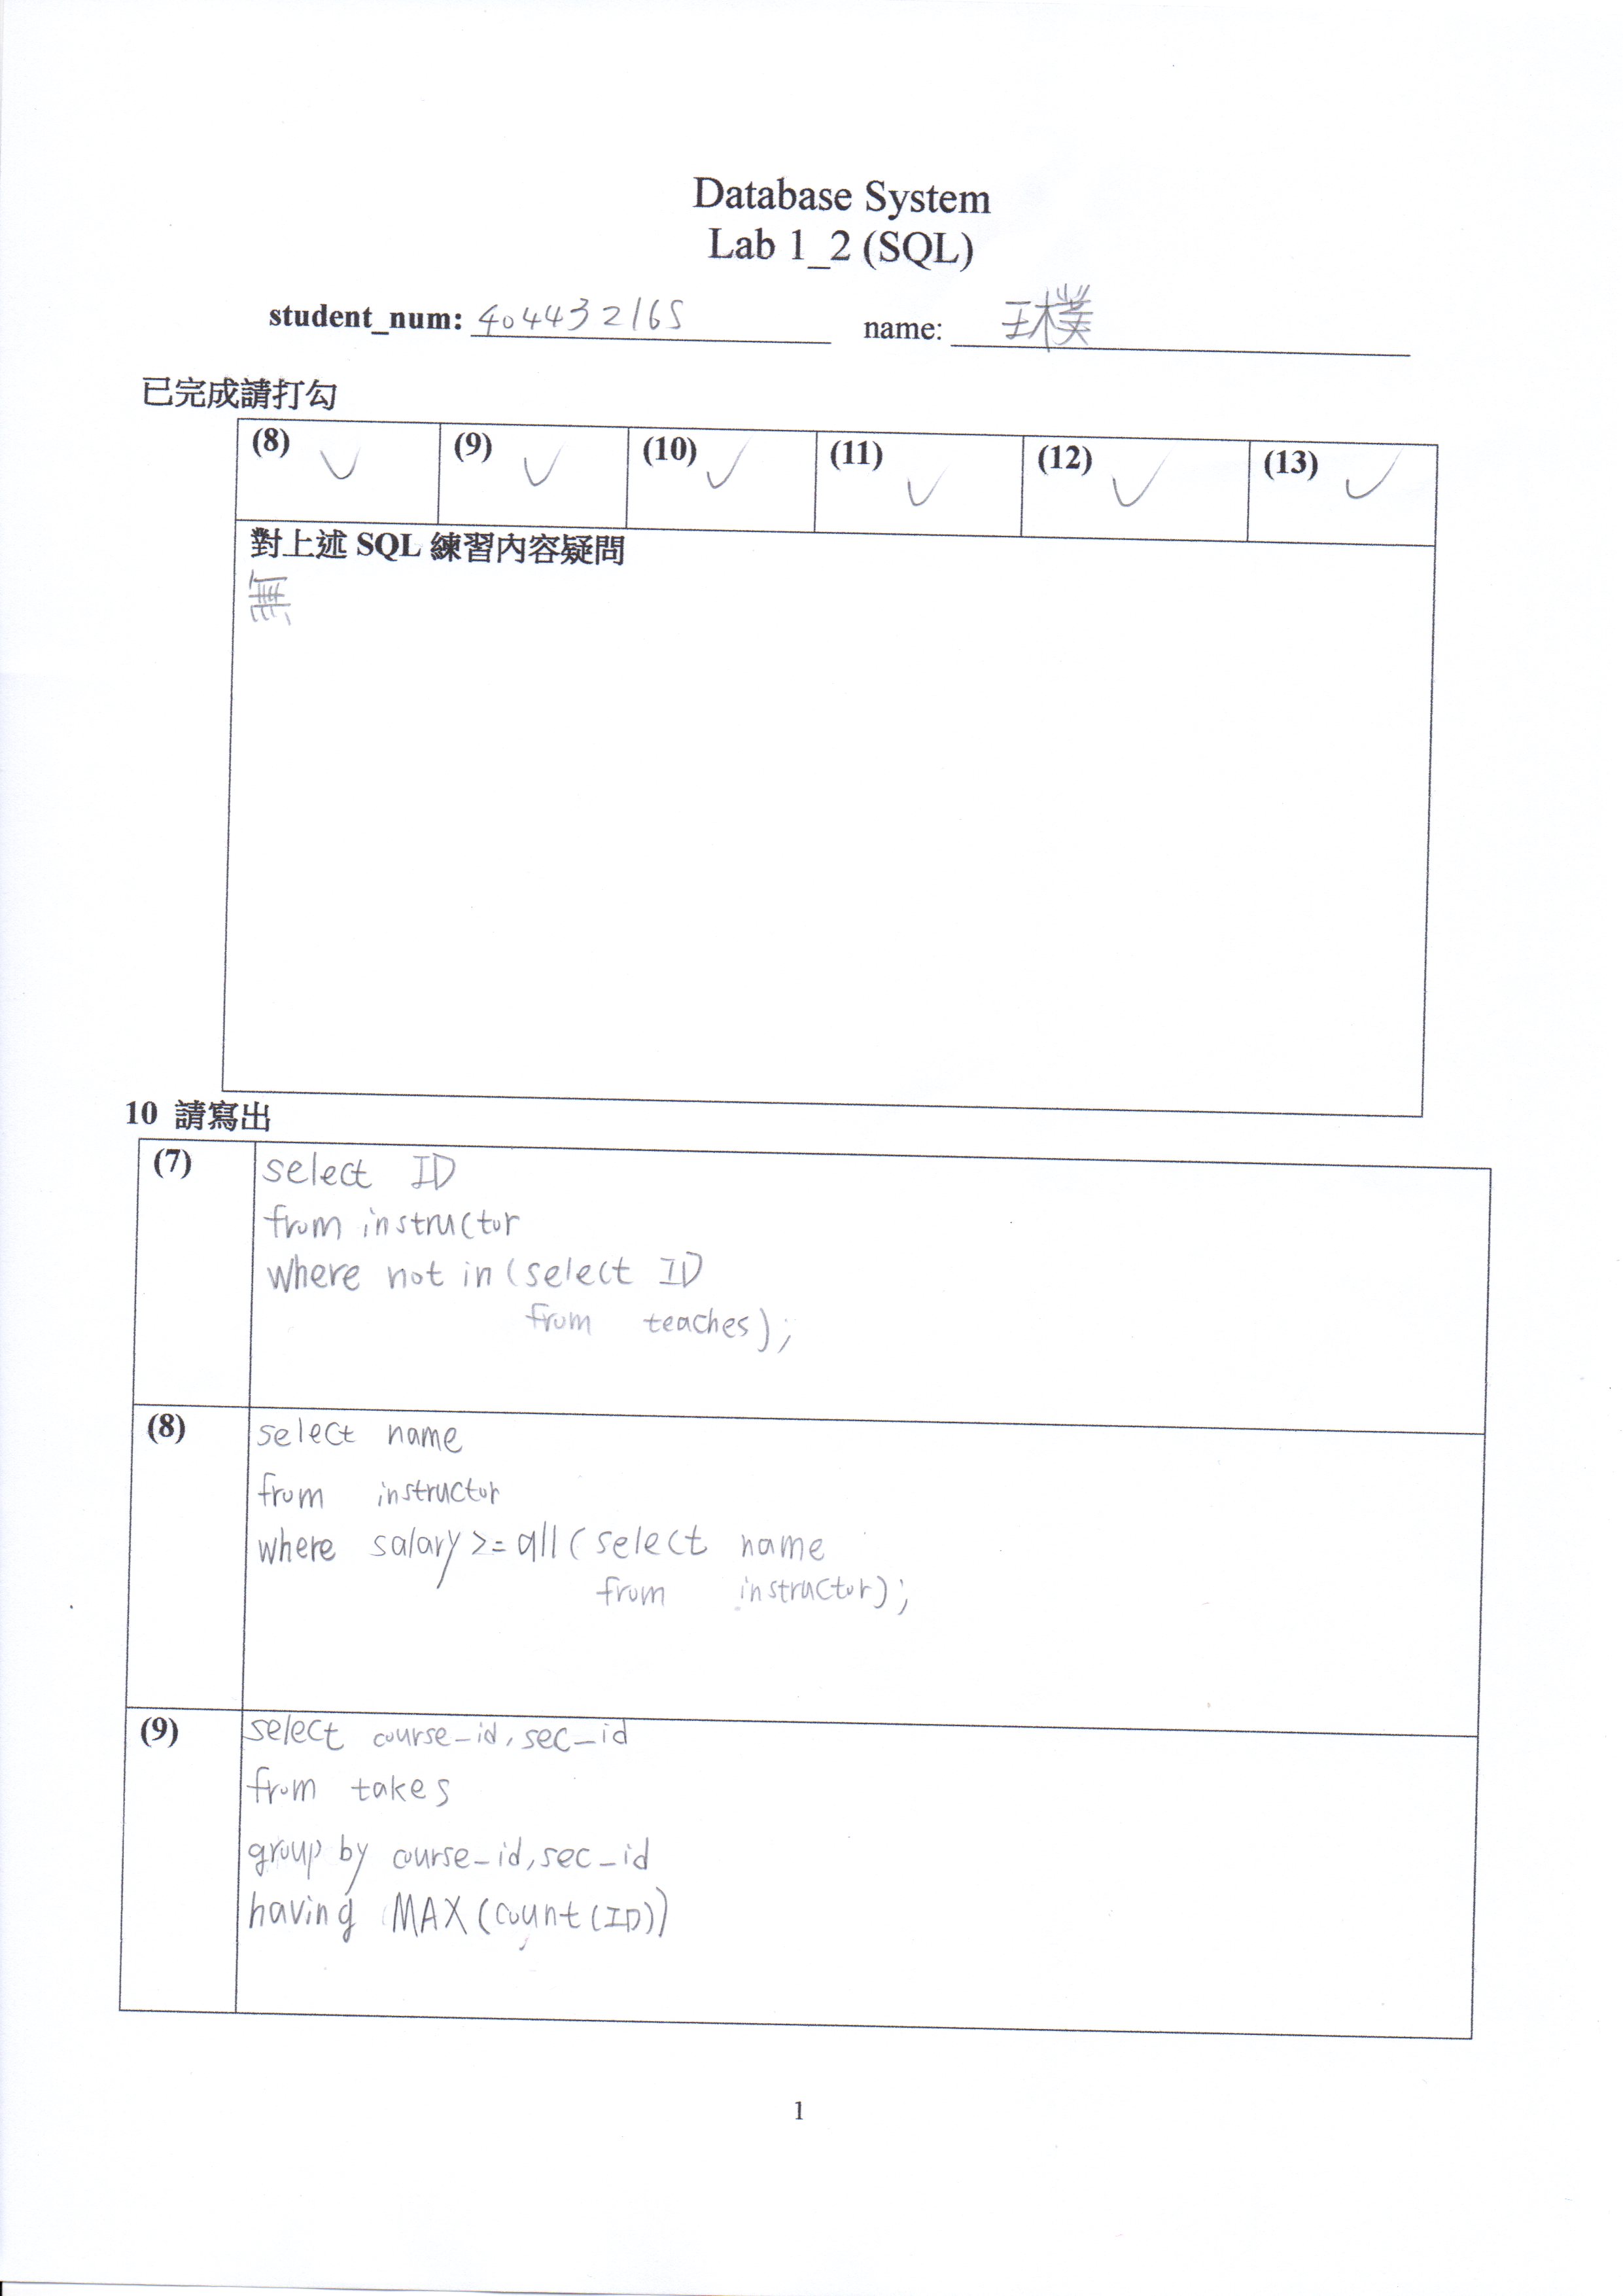 Database System
Lab 1_2 (SQL)
student_num: 404432165 name: 王樸
已完成請打勾
(8) ✓ (9) ✓ (10) ✓ (11) ✓ (12) ✓ (13) ✓
對上述 SQL 練習內容疑問
無
10 請寫出
(7) select ID
from instructor
where not in (select ID
from teaches);
(8) select name
from instructor
where salary >= all (select name
from instructor);
(9) select course_id, sec_id
from takes
group by course_id, sec_id
having MAX(count(ID))
1